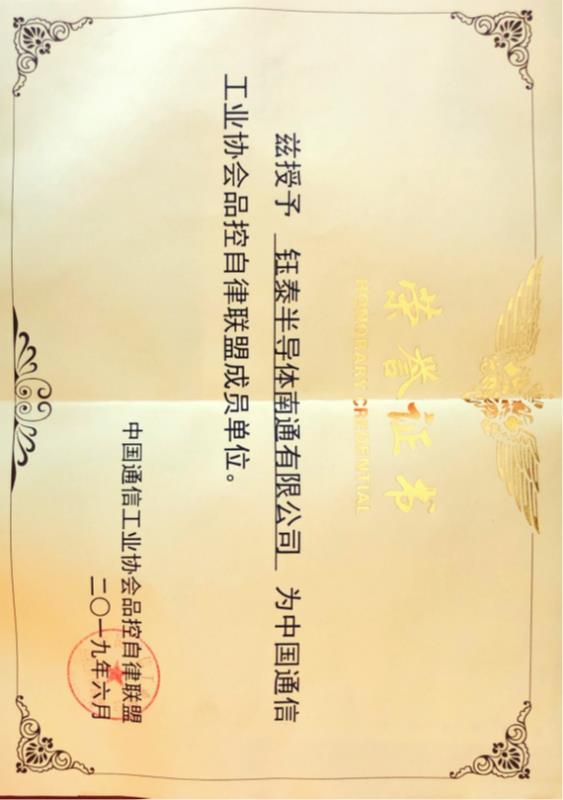 荣誉证书
HONORARY CREDENTIAL
兹授予 钰泰半导体南通有限公司 为中国通信
工业协会品控自律联盟成员单位。
中国通信工业协会品控自律联盟
二〇一九年六月